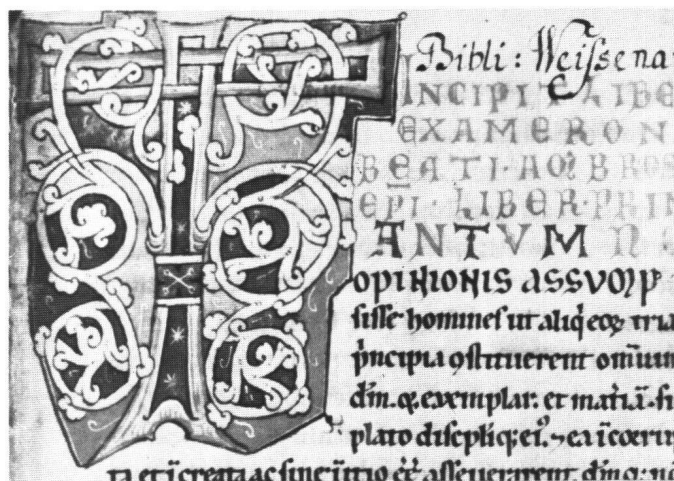 Bibli: Weissena
INCIPIT LIBE
EXAMERON
BEATI·AMBROS
EPI·LIBER·PRIM
TANTVM N
OPINIONIS ASSVMP
sisse homines ut aliq̇ eoꝝ tria
p̍ncipia ꝯstituerent omniũ
dm̄.⁊. exemplar. et mat̃iā. si
plato discipliq; ei⁹. ⁊ ea ĩcorrup
ta et ĩcreata ac sine ĩitio ẽẽ asseuerarent. dm̄ q: nõ